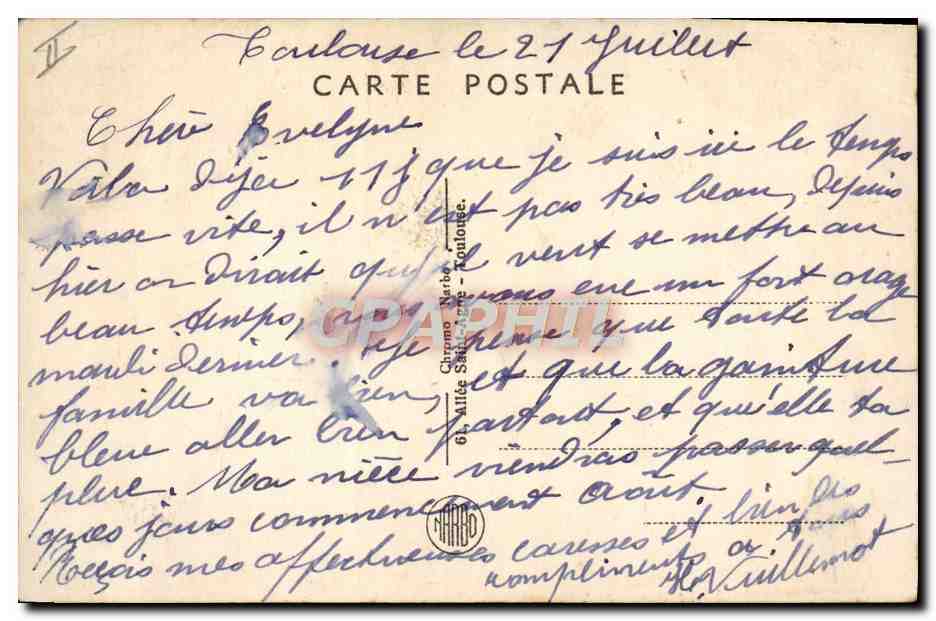 II
Toulouse le 21 Juillet
CARTE POSTALE
Chère Evelyne
Voila dejà 11 j que je suis ici le temps
passe vite, il n'est pas très beau, depuis
hier on dirait qu'il veut se mettre au
beau temps, nous avons eue un fort orage
mardi dernier. Je pense que toute la
famille va bien, et que la garniture
bleue aller bien partout, et qu'elle ta
plue. Ma nièce viendras passer quel-
ques jours commencement Août
Reçois mes affectueuses caresses et bien des
compliments a tous
H. Vuillemot
Chromo Narbo
61, Allée Saint-Agne - Toulouse.
NARBO
CPAPHIL